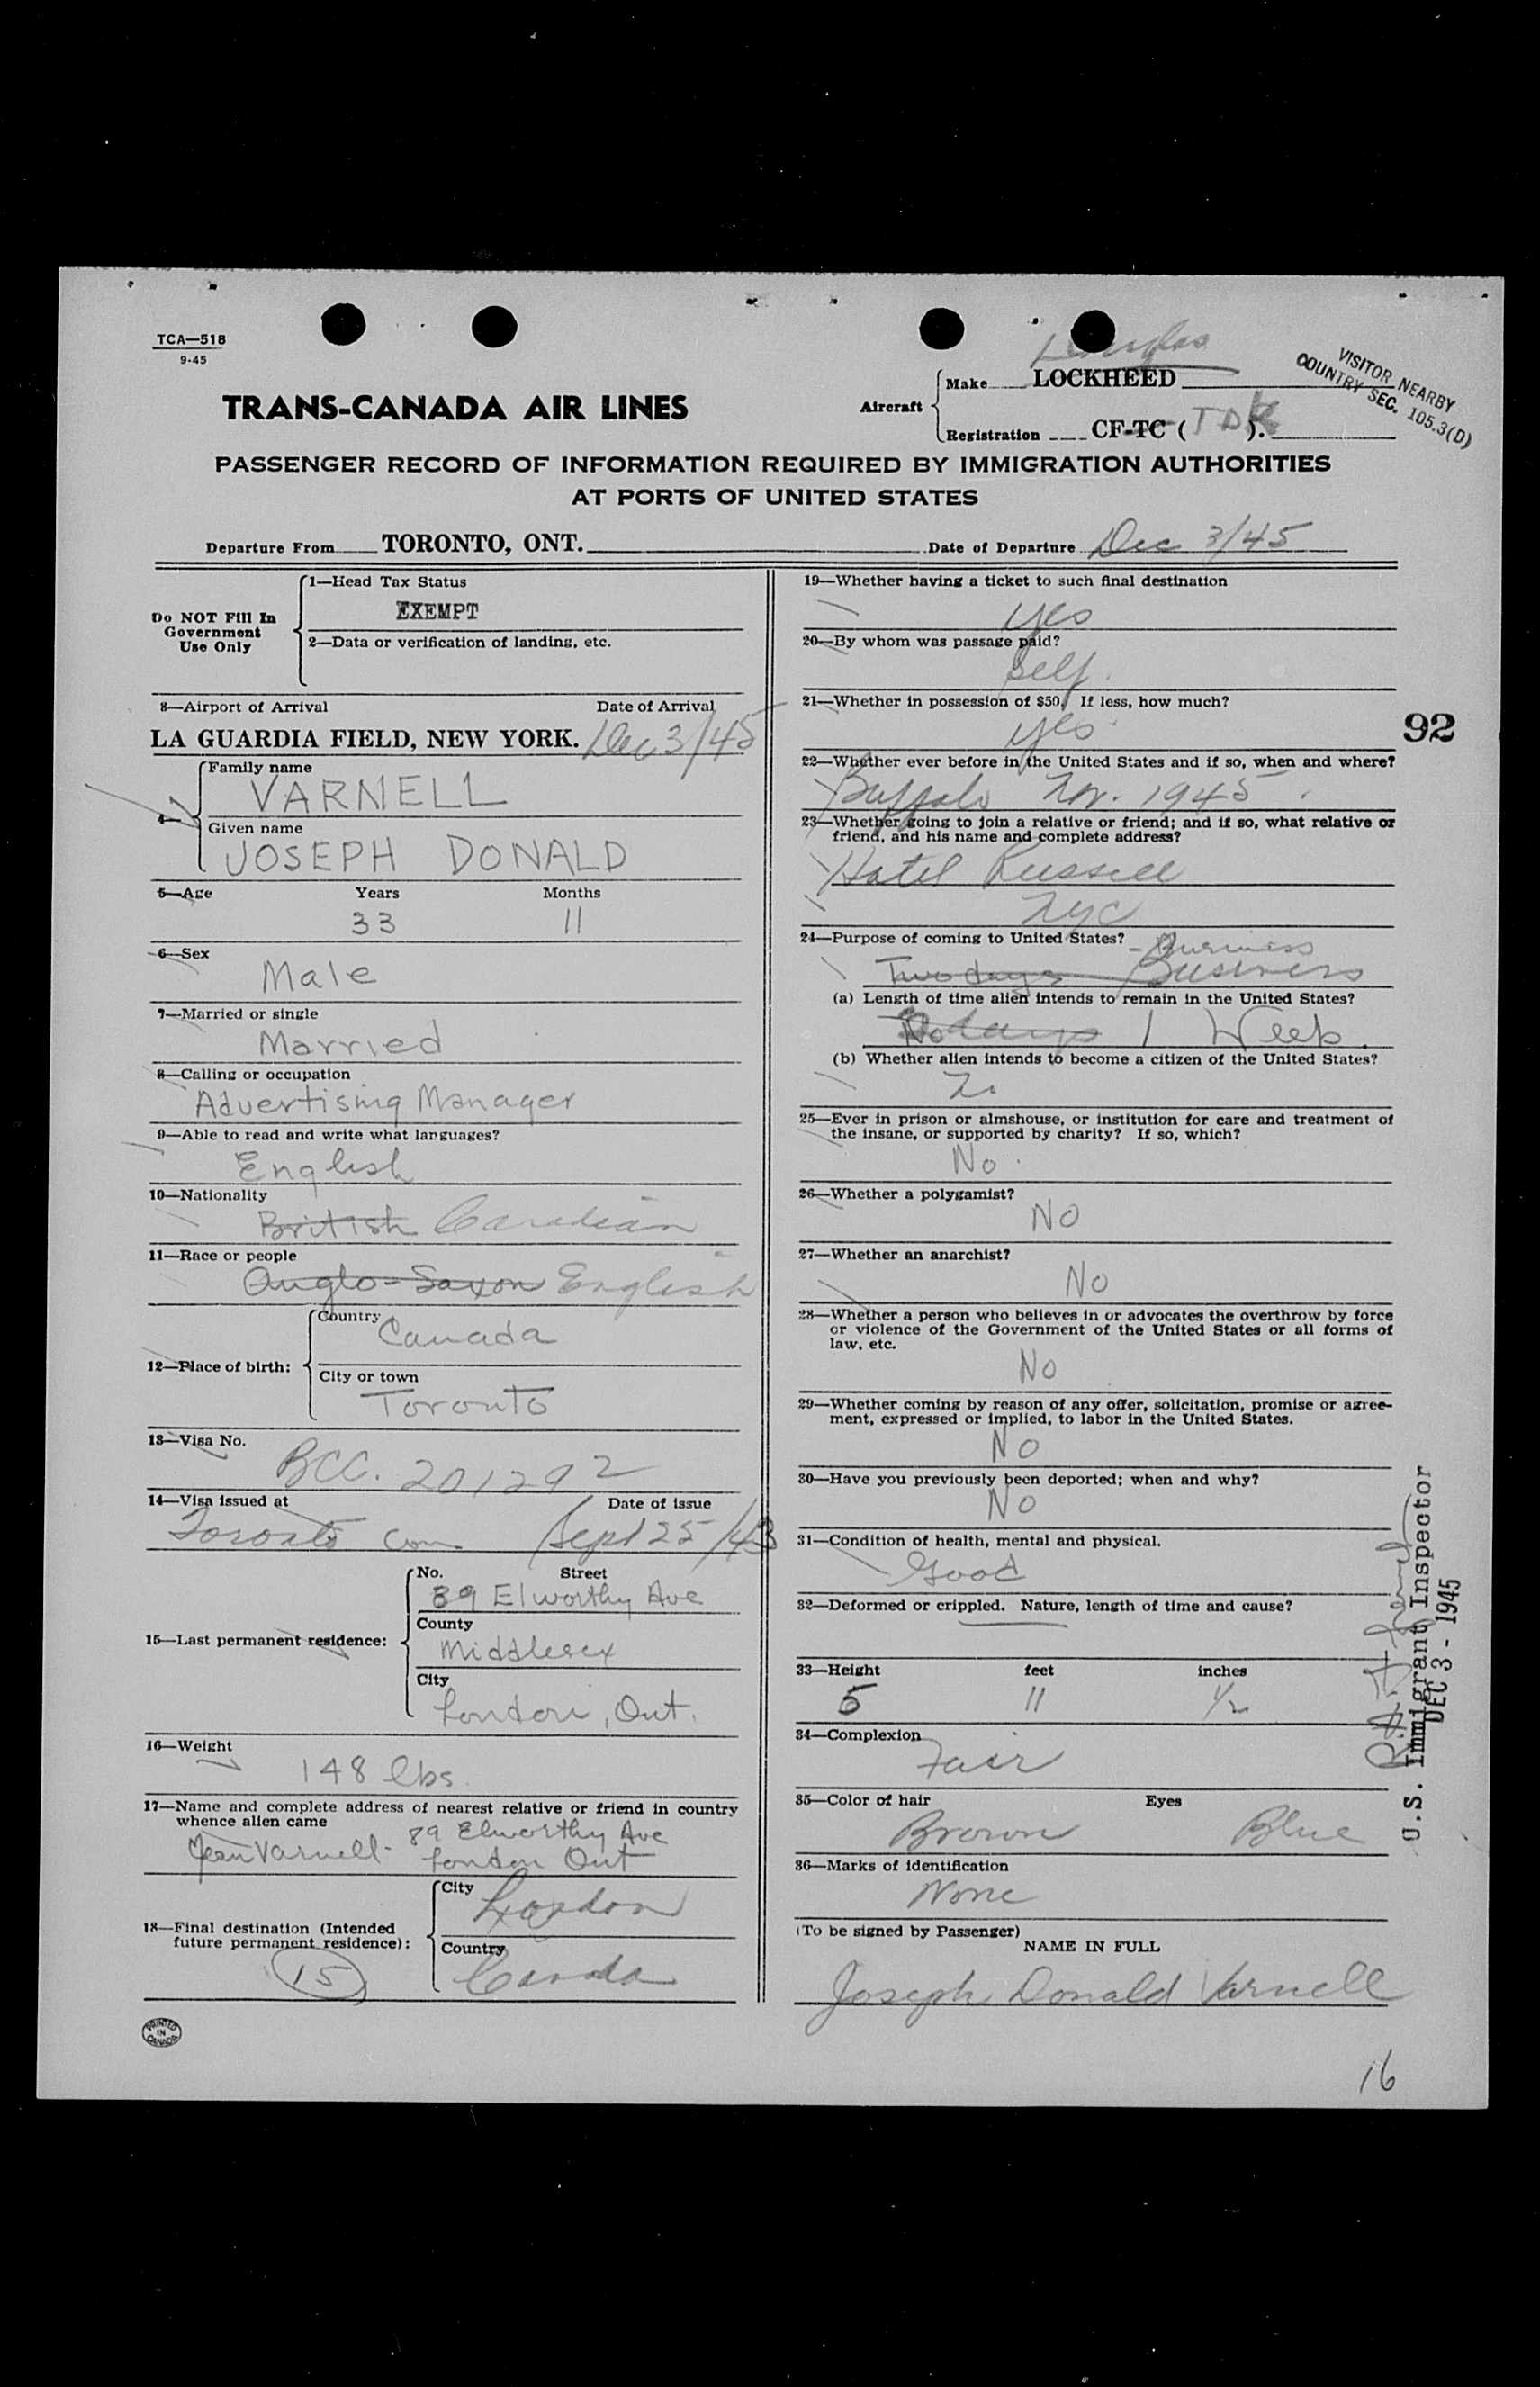 TCA—518
9-45
Douglas
Make LOCKHEED
VISITOR NEARBY
COUNTRY SEC. 105.3(D)
TRANS-CANADA AIR LINES
Aircraft
Registration CF-TC ( TD ).
PASSENGER RECORD OF INFORMATION REQUIRED BY IMMIGRATION AUTHORITIES
AT PORTS OF UNITED STATES
Departure From TORONTO, ONT. Date of Departure Dec 3/45
Do NOT Fill In
Government
Use Only
1—Head Tax Status
EXEMPT
2—Data or verification of landing, etc.
8—Airport of Arrival Date of Arrival
LA GUARDIA FIELD, NEW YORK. Dec 3/45
4—
Family name
VARNELL
Given name
JOSEPH DONALD
5—Age Years Months
33 11
6—Sex
Male
7—Married or single
Married
8—Calling or occupation
Advertising Manager
9—Able to read and write what languages?
English
10—Nationality
British Canadian
11—Race or people
Anglo-Saxon English
12—Place of birth:
Country
Canada
City or town
Toronto
13—Visa No.
BCC. 201292
14—Visa issued at Date of issue
Toronto Can Sept 25/43
15—Last permanent residence:
No. Street
89 Elworthy Ave
County
Middlesex
City
London, Ont.
16—Weight
148 lbs.
17—Name and complete address of nearest relative or friend in country
whence alien came
Jean Varnell - 89 Elworthy Ave
London Ont
18—Final destination (Intended
future permanent residence):
15
City
London
Country
Canada
PRINTED
IN
CANADA
19—Whether having a ticket to such final destination
yes
20—By whom was passage paid?
self.
21—Whether in possession of $50. If less, how much?
yes
92
22—Whether ever before in the United States and if so, when and where?
Buffalo Nov. 1945.
23—Whether going to join a relative or friend; and if so, what relative or
friend, and his name and complete address?
Hotel Russell
NYC
24—Purpose of coming to United States? - Business
Two days Business
(a) Length of time alien intends to remain in the United States?
days 1 Week.
(b) Whether alien intends to become a citizen of the United States?
No
25—Ever in prison or almshouse, or institution for care and treatment of
the insane, or supported by charity? If so, which?
No.
26—Whether a polygamist?
No
27—Whether an anarchist?
No
28—Whether a person who believes in or advocates the overthrow by force
or violence of the Government of the United States or all forms of
law, etc.
No
29—Whether coming by reason of any offer, solicitation, promise or agree-
ment, expressed or implied, to labor in the United States.
No
30—Have you previously been deported; when and why?
No
31—Condition of health, mental and physical.
Good
32—Deformed or crippled. Nature, length of time and cause?
33—Height feet inches
5 11 1/2
34—Complexion
Fair
35—Color of hair Eyes
Brown Blue
36—Marks of identification
None
(To be signed by Passenger)
NAME IN FULL
Joseph Donald Varnell
U.S. Immigrant Inspector
DEC 3 - 1945
16